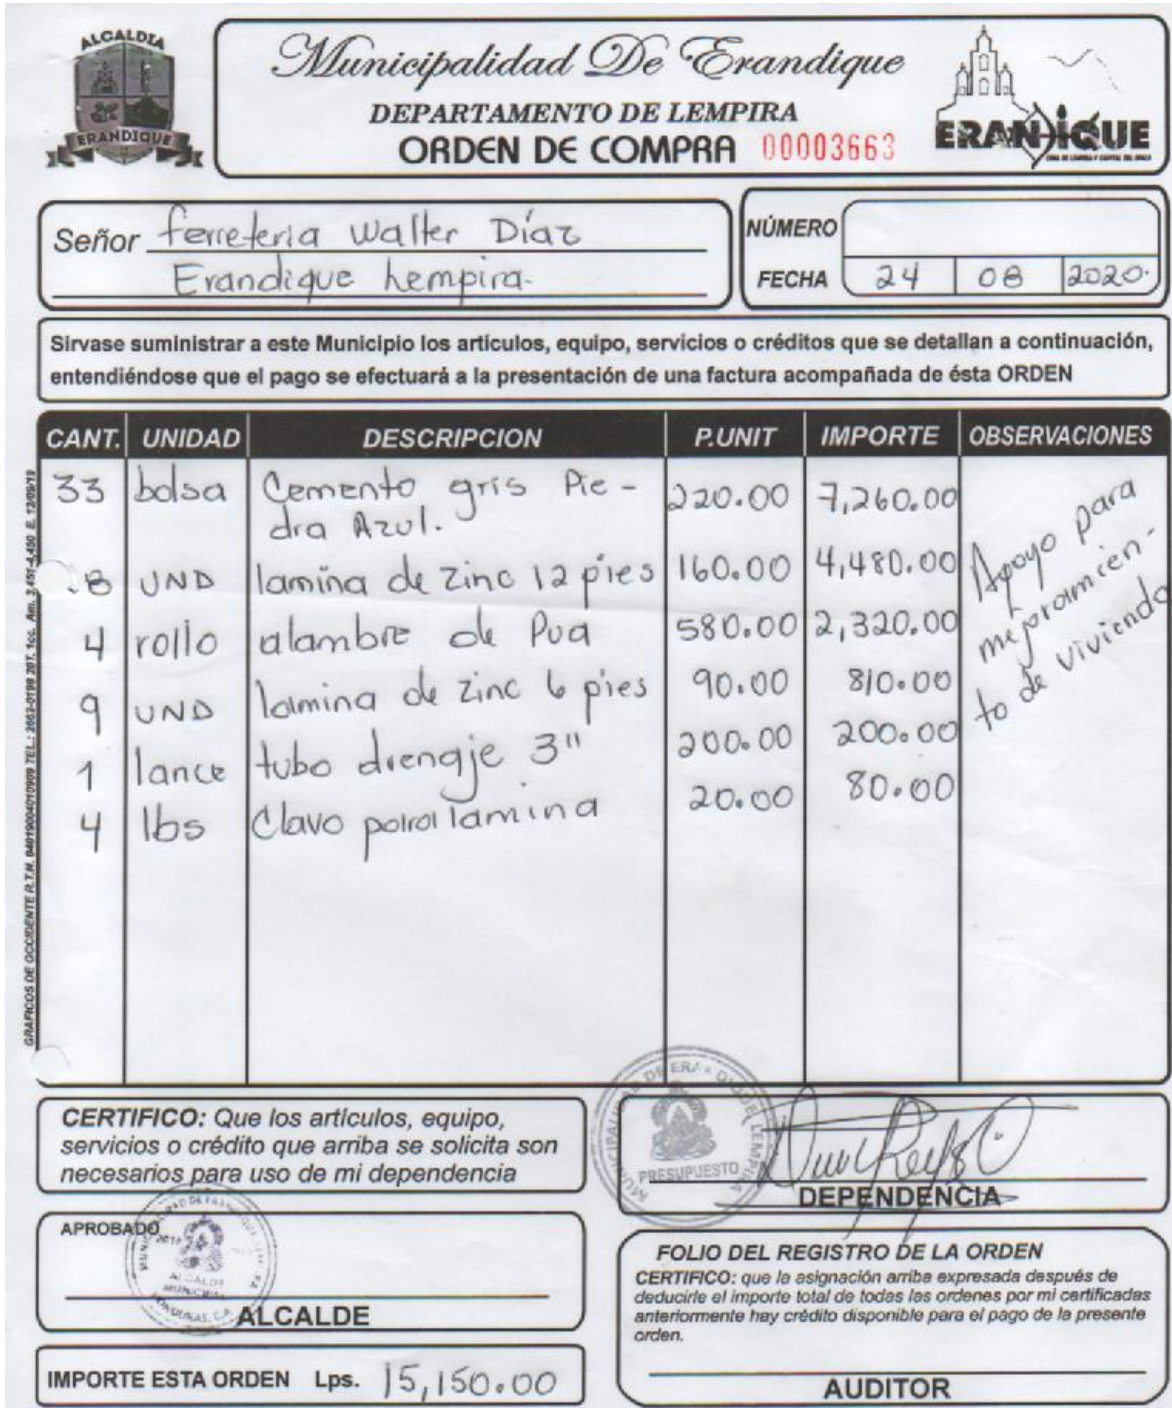 ALCALDIA
ERANDIQUE
Municipalidad De Erandique
DEPARTAMENTO DE LEMPIRA
ORDEN DE COMPRA 00003663
ERANDIQUE
Señor ferreteria Walter Díaz
Erandique Lempira.
NÚMERO
FECHA 24 08 2020.
Sirvase suministrar a este Municipio los artículos, equipo, servicios o créditos que se detallan a continuación,
entendiéndose que el pago se efectuará a la presentación de una factura acompañada de ésta ORDEN
CANT. UNIDAD DESCRIPCION P.UNIT IMPORTE OBSERVACIONES
33 bolsa Cemento gris Pie- 220.00 7,260.00
dra Azul.
8 UND lamina de zinc 12 pies 160.00 4,480.00
4 rollo alambre de Pua 580.00 2,320.00
9 UND lamina de zinc 6 pies 90.00 810.00
1 lance tubo drenaje 3" 200.00 200.00
4 lbs Clavo para lamina 20.00 80.00
Apoyo para
mejoramien-
to de vivienda
GRAFICOS DE OCCIDENTE R.T.N. 04019004010909 TEL.: 2663-0198 20T. 1cc. Am. 3,451-4,450 E. 12/09/19
CERTIFICO: Que los articulos, equipo,
servicios o crédito que arriba se solicita son
necesarios para uso de mi dependencia
MUNICIPALIDAD DE ERANDIQUE, LEMPIRA
PRESUPUESTO
DEPENDENCIA
APROBADO
ALCALDE
MUNICIPAL
HONDURAS, C.A.
ALCALDE
FOLIO DEL REGISTRO DE LA ORDEN
CERTIFICO: que la asignación arriba expresada después de
deducirle el importe total de todas las ordenes por mi certificadas
anteriormente hay crédito disponible para el pago de la presente
orden.
AUDITOR
IMPORTE ESTA ORDEN Lps. 15,150.00